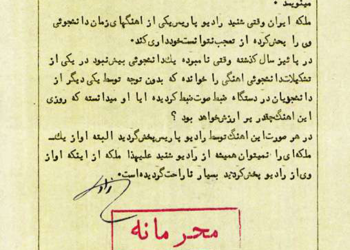 میگوید •
ملکه ایران وقتی شنید رادیو پاریس یکی از آهنگهای زمان دانشجوئی
وی را پخش کرده از تعجب نتوانست خودداری کند.
در پائیز سال گذشته وقتی نامبرده یکدانشجوئی بیش نبود در یکی از
تشکیلات دانشجوئی آهنگی را خوانده که بدون توجه توسط یکی دیگر از
دانشجویان در دستگاه ضبط صوت ضبط کردیده آیا او میدانسته که روزی
این آهنگ چقدر پر ارزش خواهد بود ؟
در هر صورت این آهنگ توسط رادیو پاریس پخش گردید البته آواز یک
ملکه ای را نمیتوان همیشه از رادیو شنید علیهذا ملکه از اینکه آواز
وی از رادیو پخش کردید بسیار ناراحت گردیده است.
محرمانه